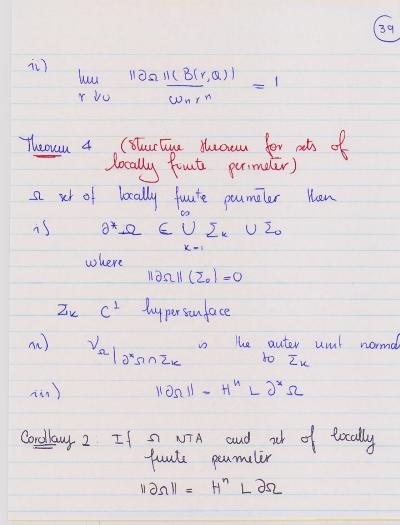 39
ii) lim r↓0 ||∂Ω||(B(r,Q)) / ωn rⁿ = 1
Theorem 4 (Structure theorem for sets of
locally finite perimeter)
Ω set of locally finite perimeter then
i) ∂*Ω ⊂ ∞ ∪ k=1 Σk ∪ Σ0
where
||∂Ω||(Σ0)=0
Σk C¹ hypersurface
ii) νΩ|∂*Ω∩Σk is the outer unit normal
to Σk
iii) ||∂Ω|| = Hⁿ L ∂*Ω
Corollary 2: If Ω NTA and set of locally
finite perimeter
||∂Ω|| = Hⁿ L ∂Ω